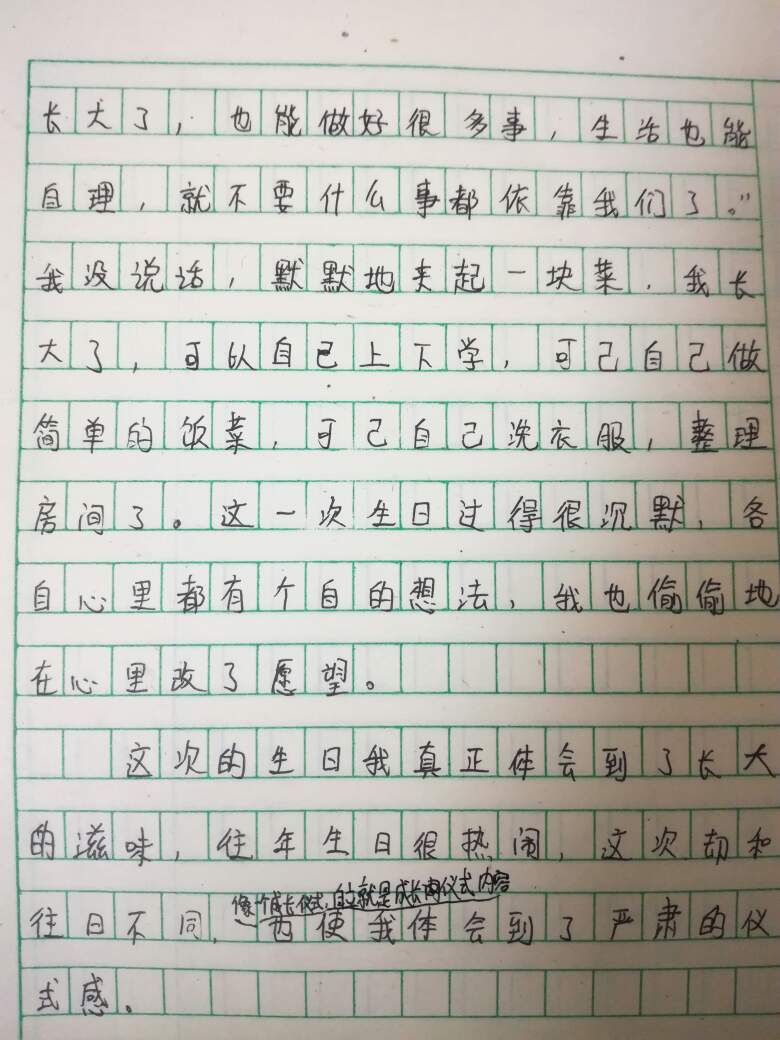 长大了，也能做好很多事，生活也能
自理，就不要什么事都依靠我们了。”
我没说话，默默地夹起一块菜，我长
大了，可以自己上下学，可己自己做
简单的饭菜，可己自己洗衣服，整理
房间了。这一次生日过得很沉默，各
自心里都有个自的想法，我也偷偷地
在心里改了愿望。
这次的生日我真正体会到了长大
的滋味，往年生日很热闹，这次却和
像个成长仪式，自立就是成长的仪式内容
往日不同，而使我体会到了严肃的仪
式感。